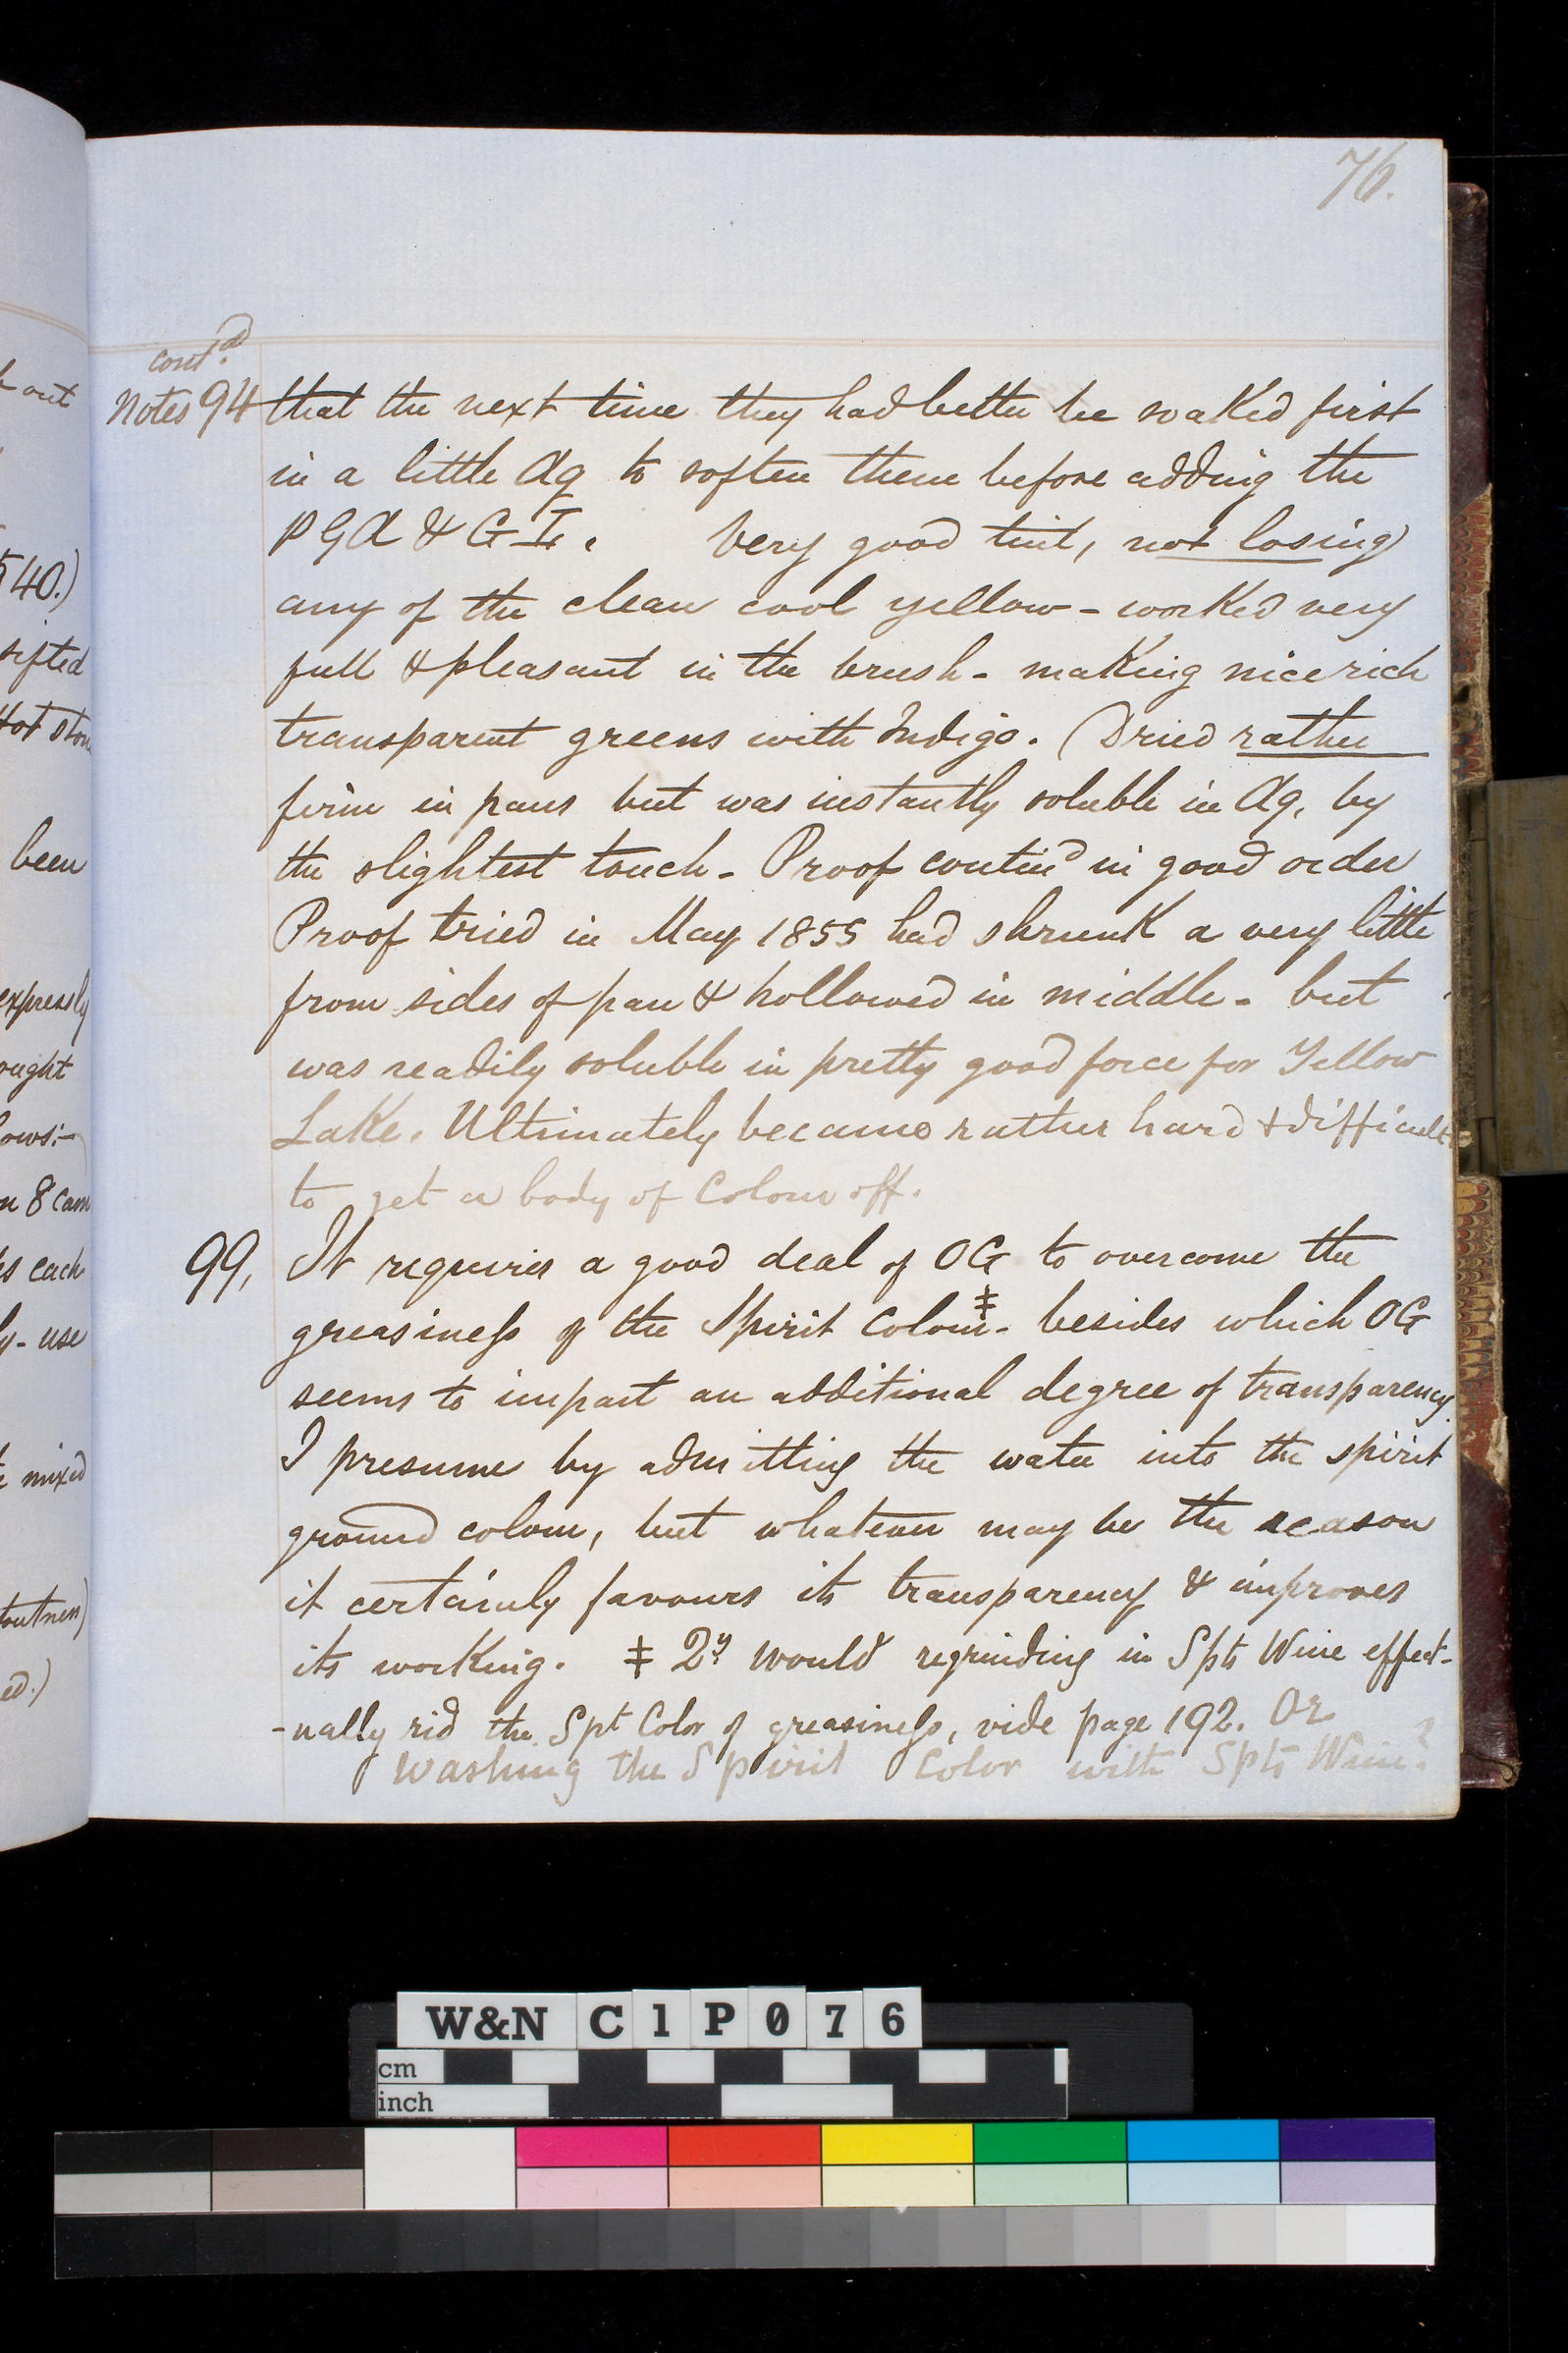 76.
cont.d
Notes 94 that the next time they had better be soaked first
in a little Aq to soften them before adding the
PGA & GI. Very good tint, not losing
any of the clean cool yellow - worked very
full & pleasant in the brush - making nice rich
transparent greens with Indigo. (Dried rather
firm in pans but was instantly soluble in Aq, by
the slightest touch - Proof contind in good order
Proof tried in May 1855 had shrunk a very little
from sides of pan & hollowed in middle - but
was readily soluble in pretty good force for Yellow
Lake. Ultimately became rather hard & difficult
to get a body of Colour off.
99, It requires a good deal of OG to overcome the
greasiness of the Spirit Colour ‡ - besides which OG
seems to impart an additional degree of transparency
I presume by admitting the water into the spirit
ground colour, but whatever may be the reason
it certainly favours its transparency & improves
its working. ‡ 2y would regrinding in Spts Wine effect-
-ually rid the Spt Color of greasiness, vide page 192. Or
washing the Spirit Color with Spts Wine?
out
540.)
sifted
Hot ston
been
expressly
ought
lows:-
8 cam
each
use
mixed
ed.)
W&N C1P076
cm
inch